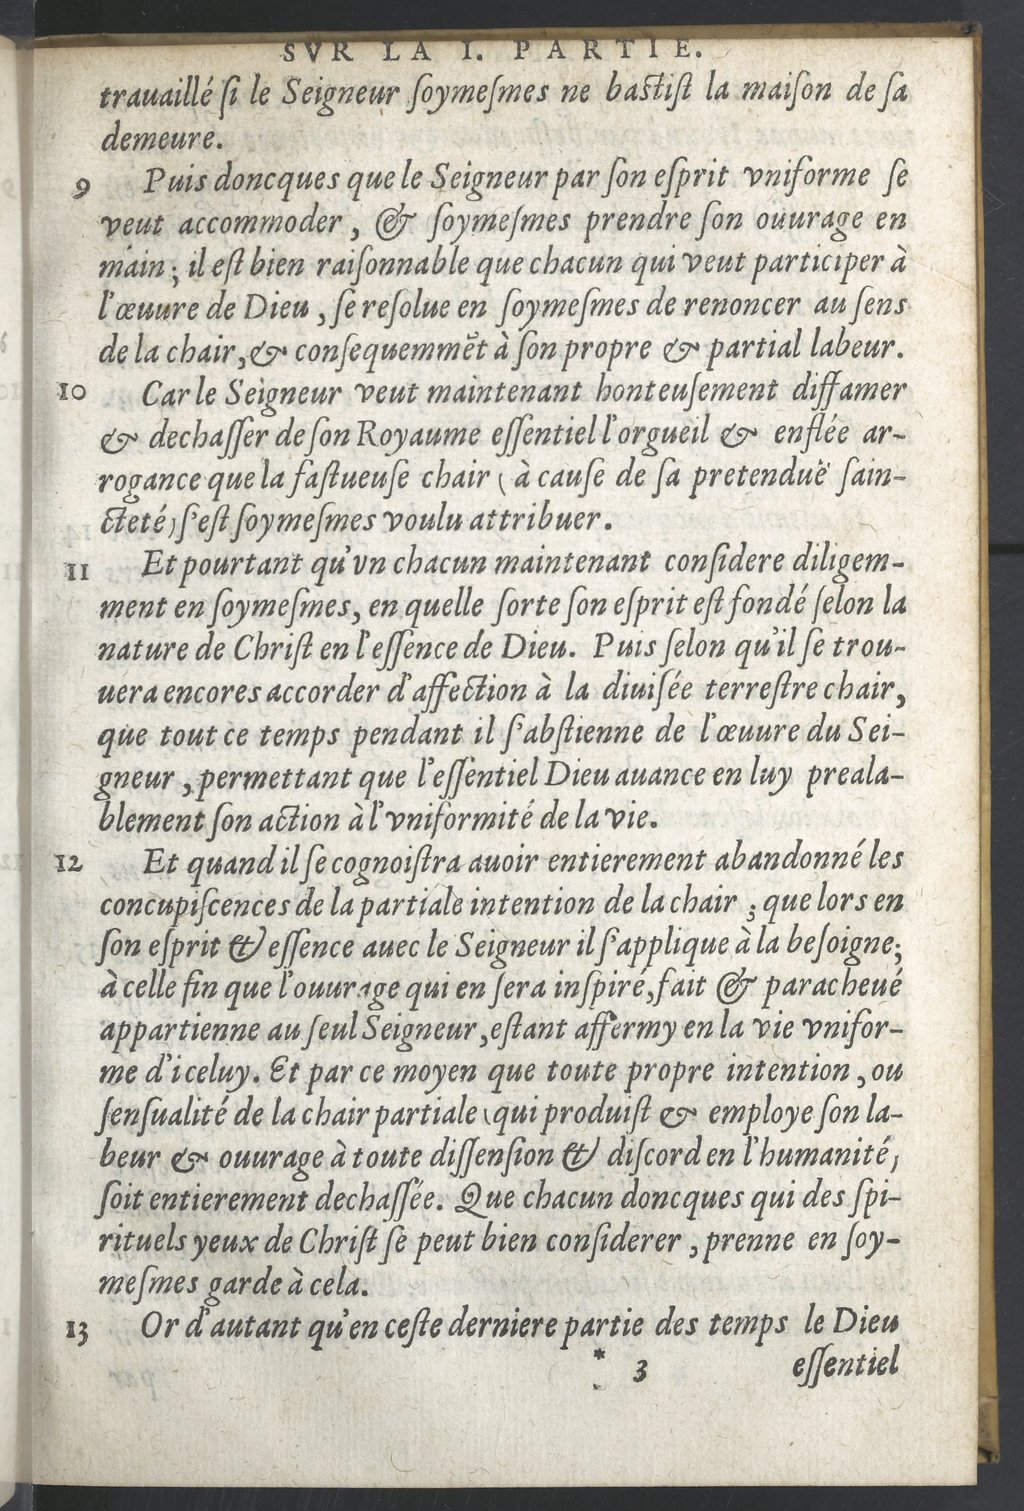 SVR LA I. PARTIE.
trauaillé ſi le Seigneur ſoymeſmes ne baſtiſt la maiſon de ſa
demeure.
9 Puis doncques que le Seigneur par ſon eſprit vniforme ſe
veut accommoder, & ſoymeſmes prendre ſon ouurage en
main; il eſt bien raiſonnable que chacun qui veut participer à
l'œuure de Dieu, ſe reſolue en ſoymeſmes de renoncer au ſens
de la chair, & conſequemmẽt à ſon propre & partial labeur.
10 Car le Seigneur veut maintenant honteuſement diffamer
& dechaſſer de ſon Royaume eſſentiel l'orgueil & enflée ar-
rogance que la faſtueuſe chair (à cauſe de ſa pretenduë ſain-
cteté) s'eſt ſoymeſmes voulu attribuer.
11 Et pourtant qu'vn chacun maintenant conſidere diligem-
ment en ſoymeſmes, en quelle ſorte ſon eſprit eſt fondé ſelon la
nature de Chriſt en l'eſſence de Dieu. Puis ſelon qu'il ſe trou-
uera encores accorder d'affection à la diuiſée terreſtre chair,
que tout ce temps pendant il ſ'abſtienne de l'œuure du Sei-
gneur, permettant que l'eſſentiel Dieu auance en luy preala-
blement ſon action à l'vniformité de la vie.
12 Et quand il ſe cognoiſtra auoir entierement abandonné les
concupiſcences de la partiale intention de la chair; que lors en
ſon eſprit & eſſence auec le Seigneur il ſ'applique à la beſoigne;
à celle fin que l'ouurage qui en ſera inſpiré, fait & paracheué
appartienne au ſeul Seigneur, eſtant affermy en la vie vnifor-
me d'iceluy. Et par ce moyen que toute propre intention, ou
ſenſualité de la chair partiale (qui produiſt & employe ſon la-
beur & ouurage à toute diſſenſion & diſcord en l'humanité)
ſoit entierement dechaſſée. Que chacun doncques qui des ſpi-
rituels yeux de Chriſt ſe peut bien conſiderer, prenne en ſoy-
meſmes garde à cela.
13 Or d'autant qu'en ceſte derniere partie des temps le Dieu
* 3 eſſentiel